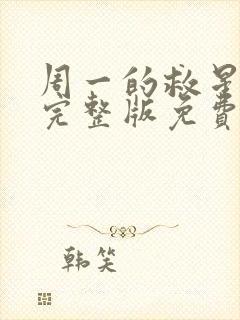 周一的救星
完整版免费
韩笑